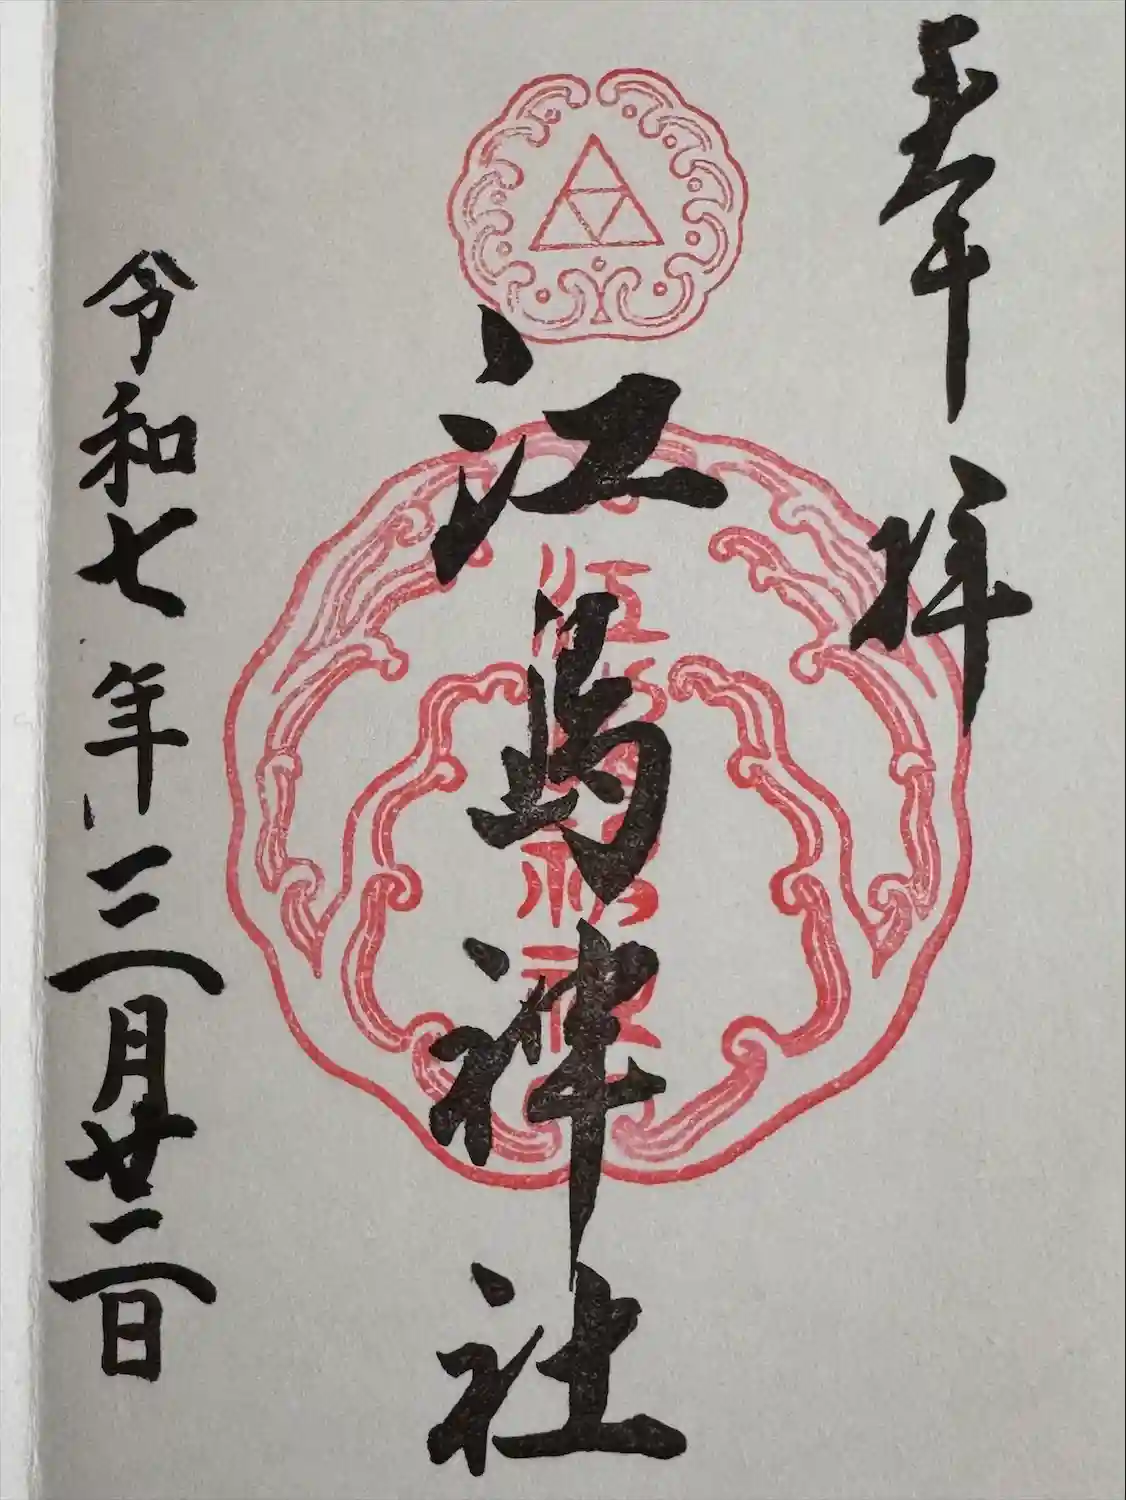 奉拝
江島神社
江島神社
令和七年三月廿二日